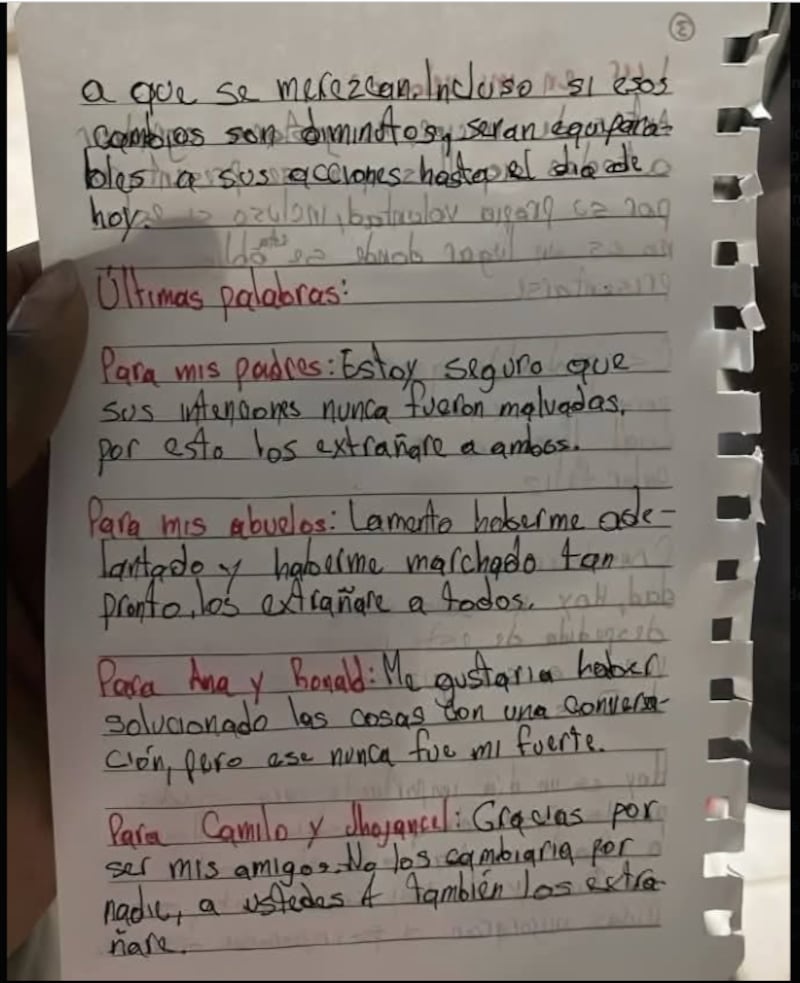 3
a que se merezcan. Incluso si esos
cambios son diminutos, seran equipara-
bles a sus acciones hasta el dia de
hoy.
Últimas palabras:
Para mis padres: Estoy seguro que
sus intenciones nunca fueron malvadas,
por esto los extrañare a ambos.
Para mis abuelos: Lamento haberme ade-
lantado y haberme marchado tan
pronto, los extrañare a todos.
Para Ana y Ronald: Me gustaria haber
solucionado las cosas con una conversa-
ción, pero ese nunca fue mi fuerte.
Para Camilo y Jhojancel: Gracias por
ser mis amigos. No los cambiaria por
nadie, a ustedes también los extra-
ñare.